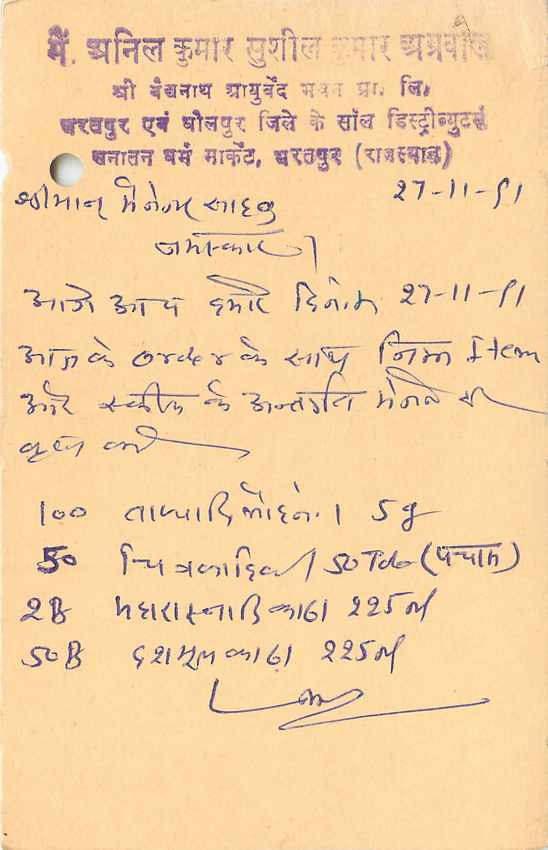 मै. अनिल कुमार सुशील कुमार अग्रवाल
श्री बैद्यनाथ आयुर्वेद भवन प्रा. लि.
भरतपुर एवं धौलपुर जिले के सॉल डिस्ट्रीब्युटर्स
सनातन धर्म मार्केट, भरतपुर (राजस्थान)
श्रीमान मैनेजर साहब 27-11-91
नमस्कार।
आगे आप हमारे दिनांक 27-11-91
आज के order के साथ निम्न Item
और स्कीम के अन्तर्गत भेजने की
कृपा करें
100 ताप्यादि लोह नं. 1 5g
50 चित्रकादिवटी 50 Tab (पचास)
2B महारास्नादि काढा 225 ml
50B दशमूल काढा 225 ml